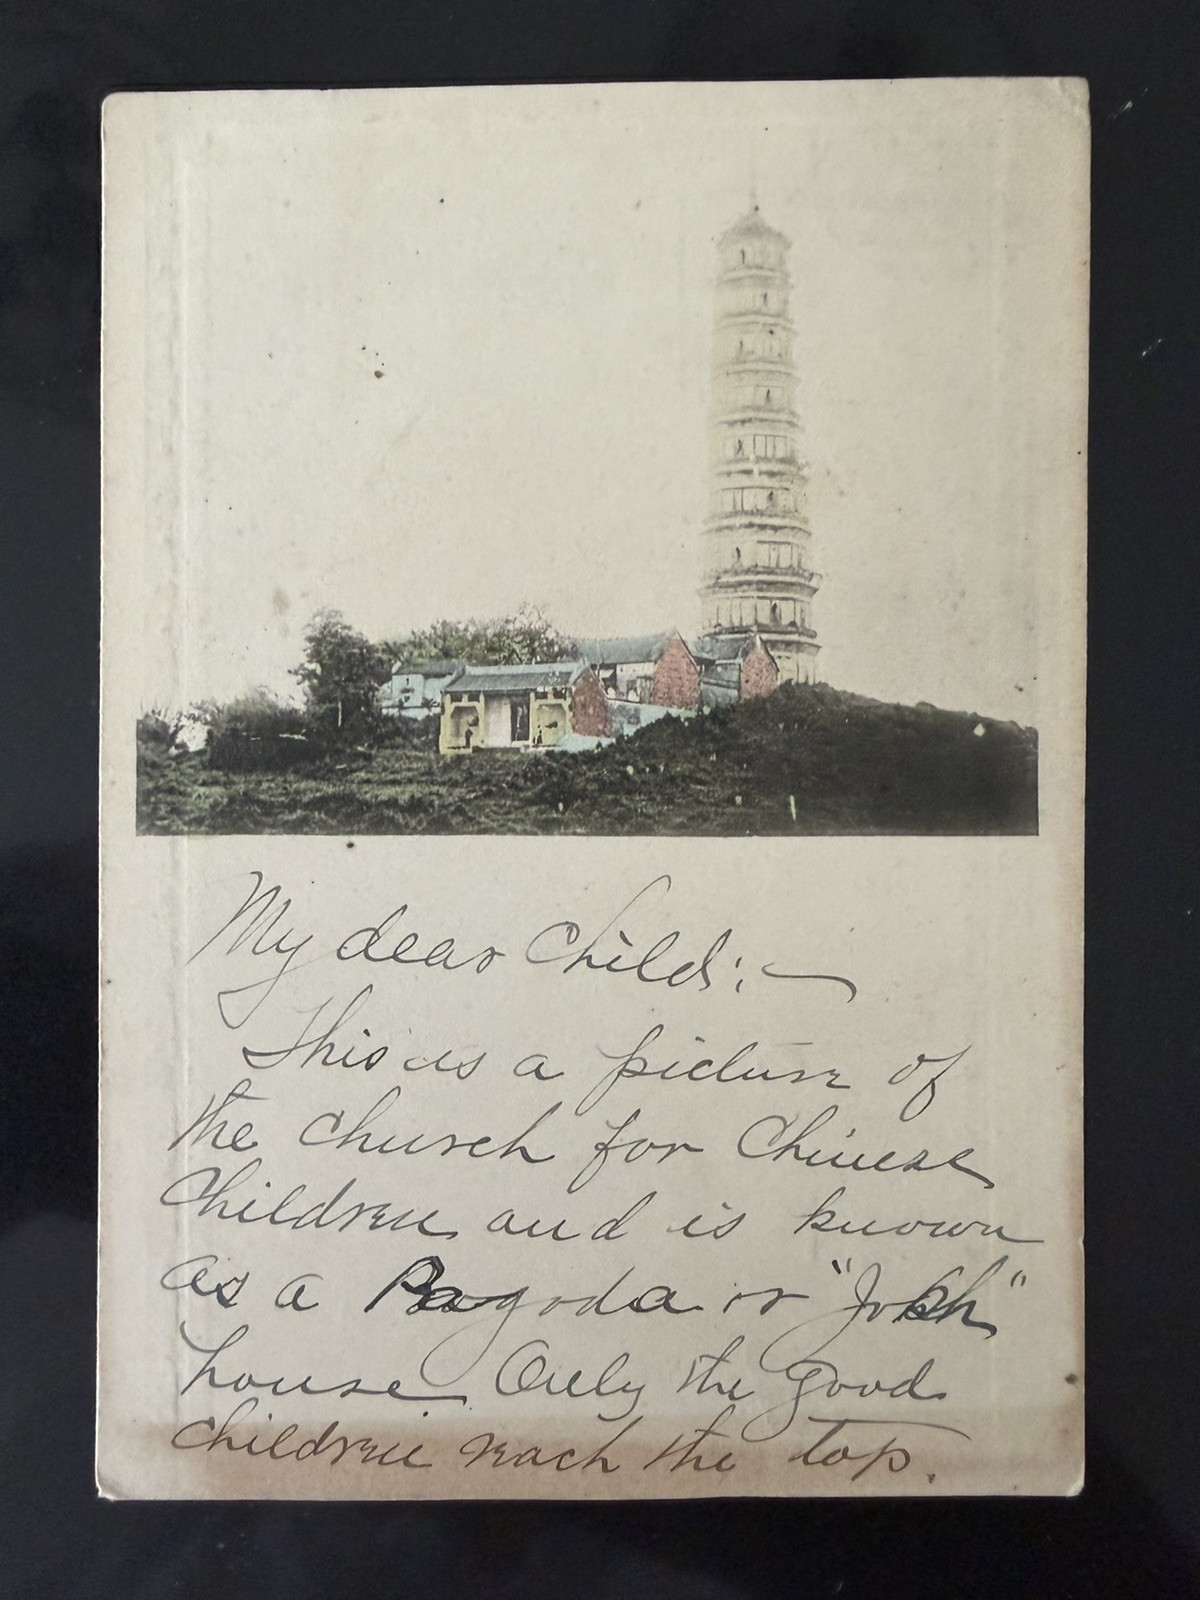 My dear Child:—
This is a picture of
the church for Chinese
Children and is known
as a Pagoda or "Josh"
house Only the good
children reach the top.